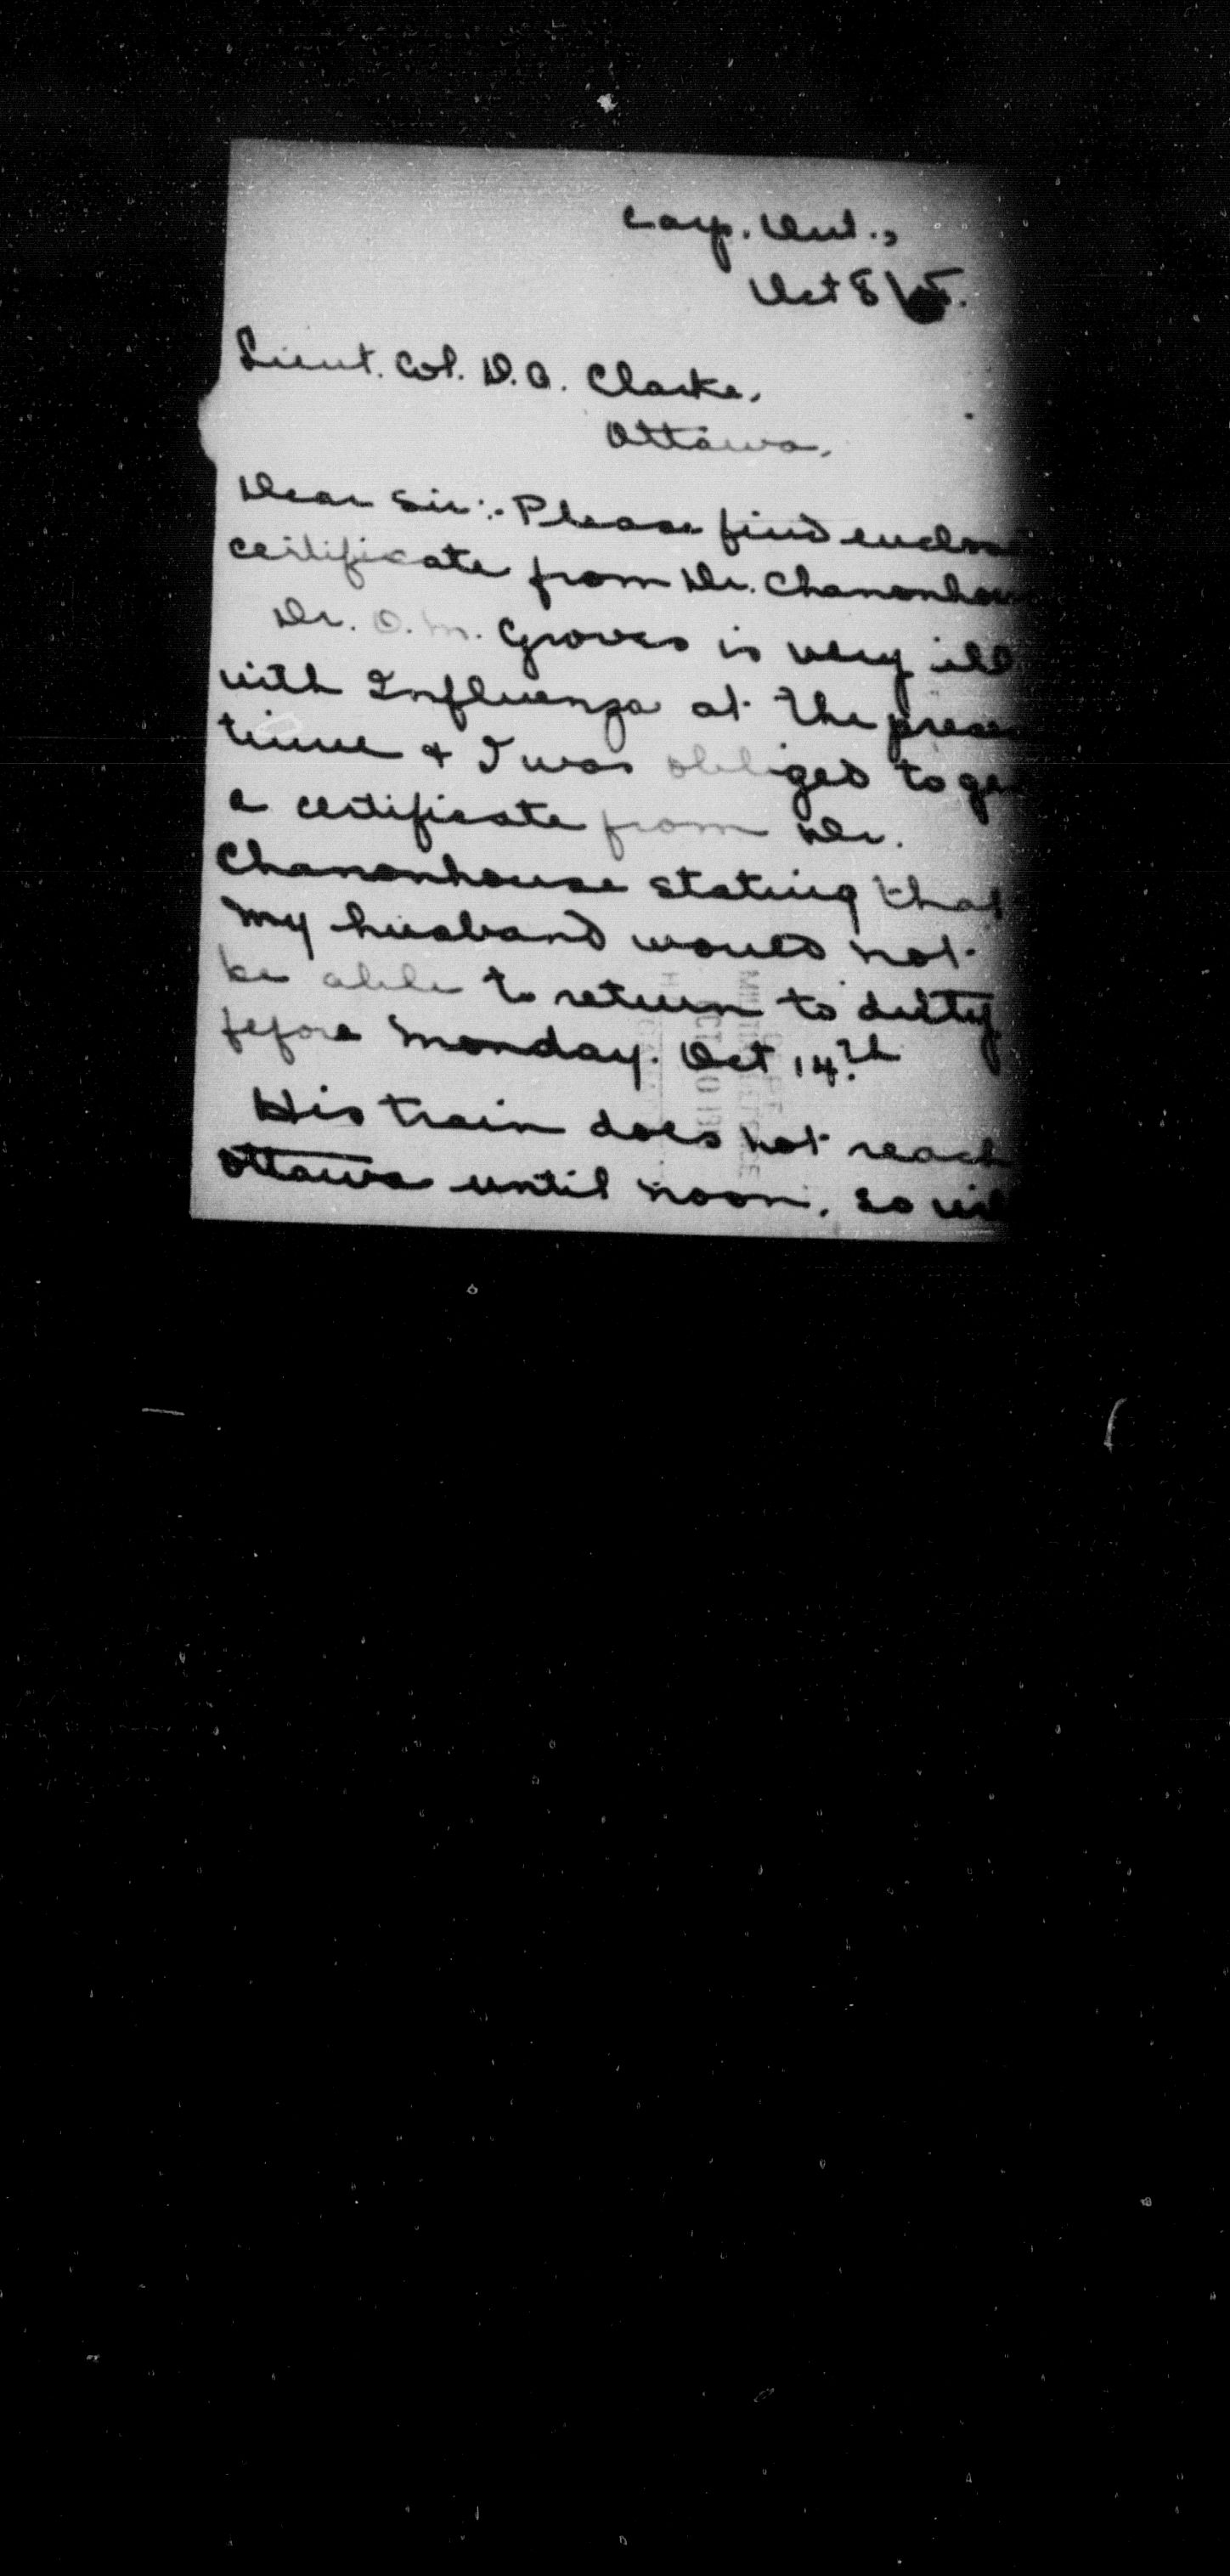 Carp. Ont.,
Oct 8
Lieut. Col. D. A. Clarke,
Ottawa,
Dear Sir:- Please find
certificate from Dr.
Dr. O. M. Groves is very ill
with Influenza at the
time & I was obliged to
a certificate from Dr.
Chamonhouse stating that
my husband would not
be able to return to duty
fefore Monday. Oct 14th
His train does not reach
Ottawa until noon, so